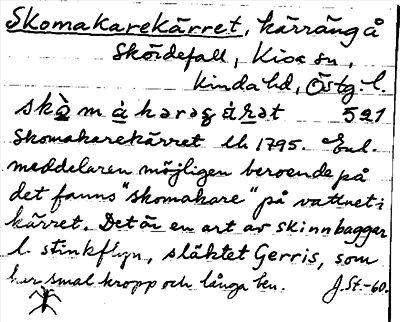 Skomakarekärret, kärräng å
Skördefall, Kisa sn,
Kinda hd, Östg. l.
skò̱m à̱kərəʒ ä́ṟət 521
Skomakarekärret lh 1795. Enl.
meddelaren möjligen beroende på
det fanns "skomakare" på vattnet i
kärret. Det är en art av skinnbaggar
l. stinkflyn, släktet Gerris, som
har smal kropp och långa ben. J.St.-60.